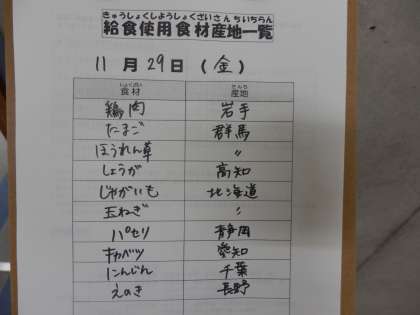 きゅうしょくしようしょくざいさんちいちらん
給食使用食材産地一覧
11月29日(金)
しょくざい さんち
食材 産地
鶏肉 岩手
たまご 群馬
ほうれん草 〃
しょうが 高知
じゃがいも 北海道
玉ねぎ 〃
パセリ 静岡
キャベツ 愛知
にんじん 千葉
えのき 長野